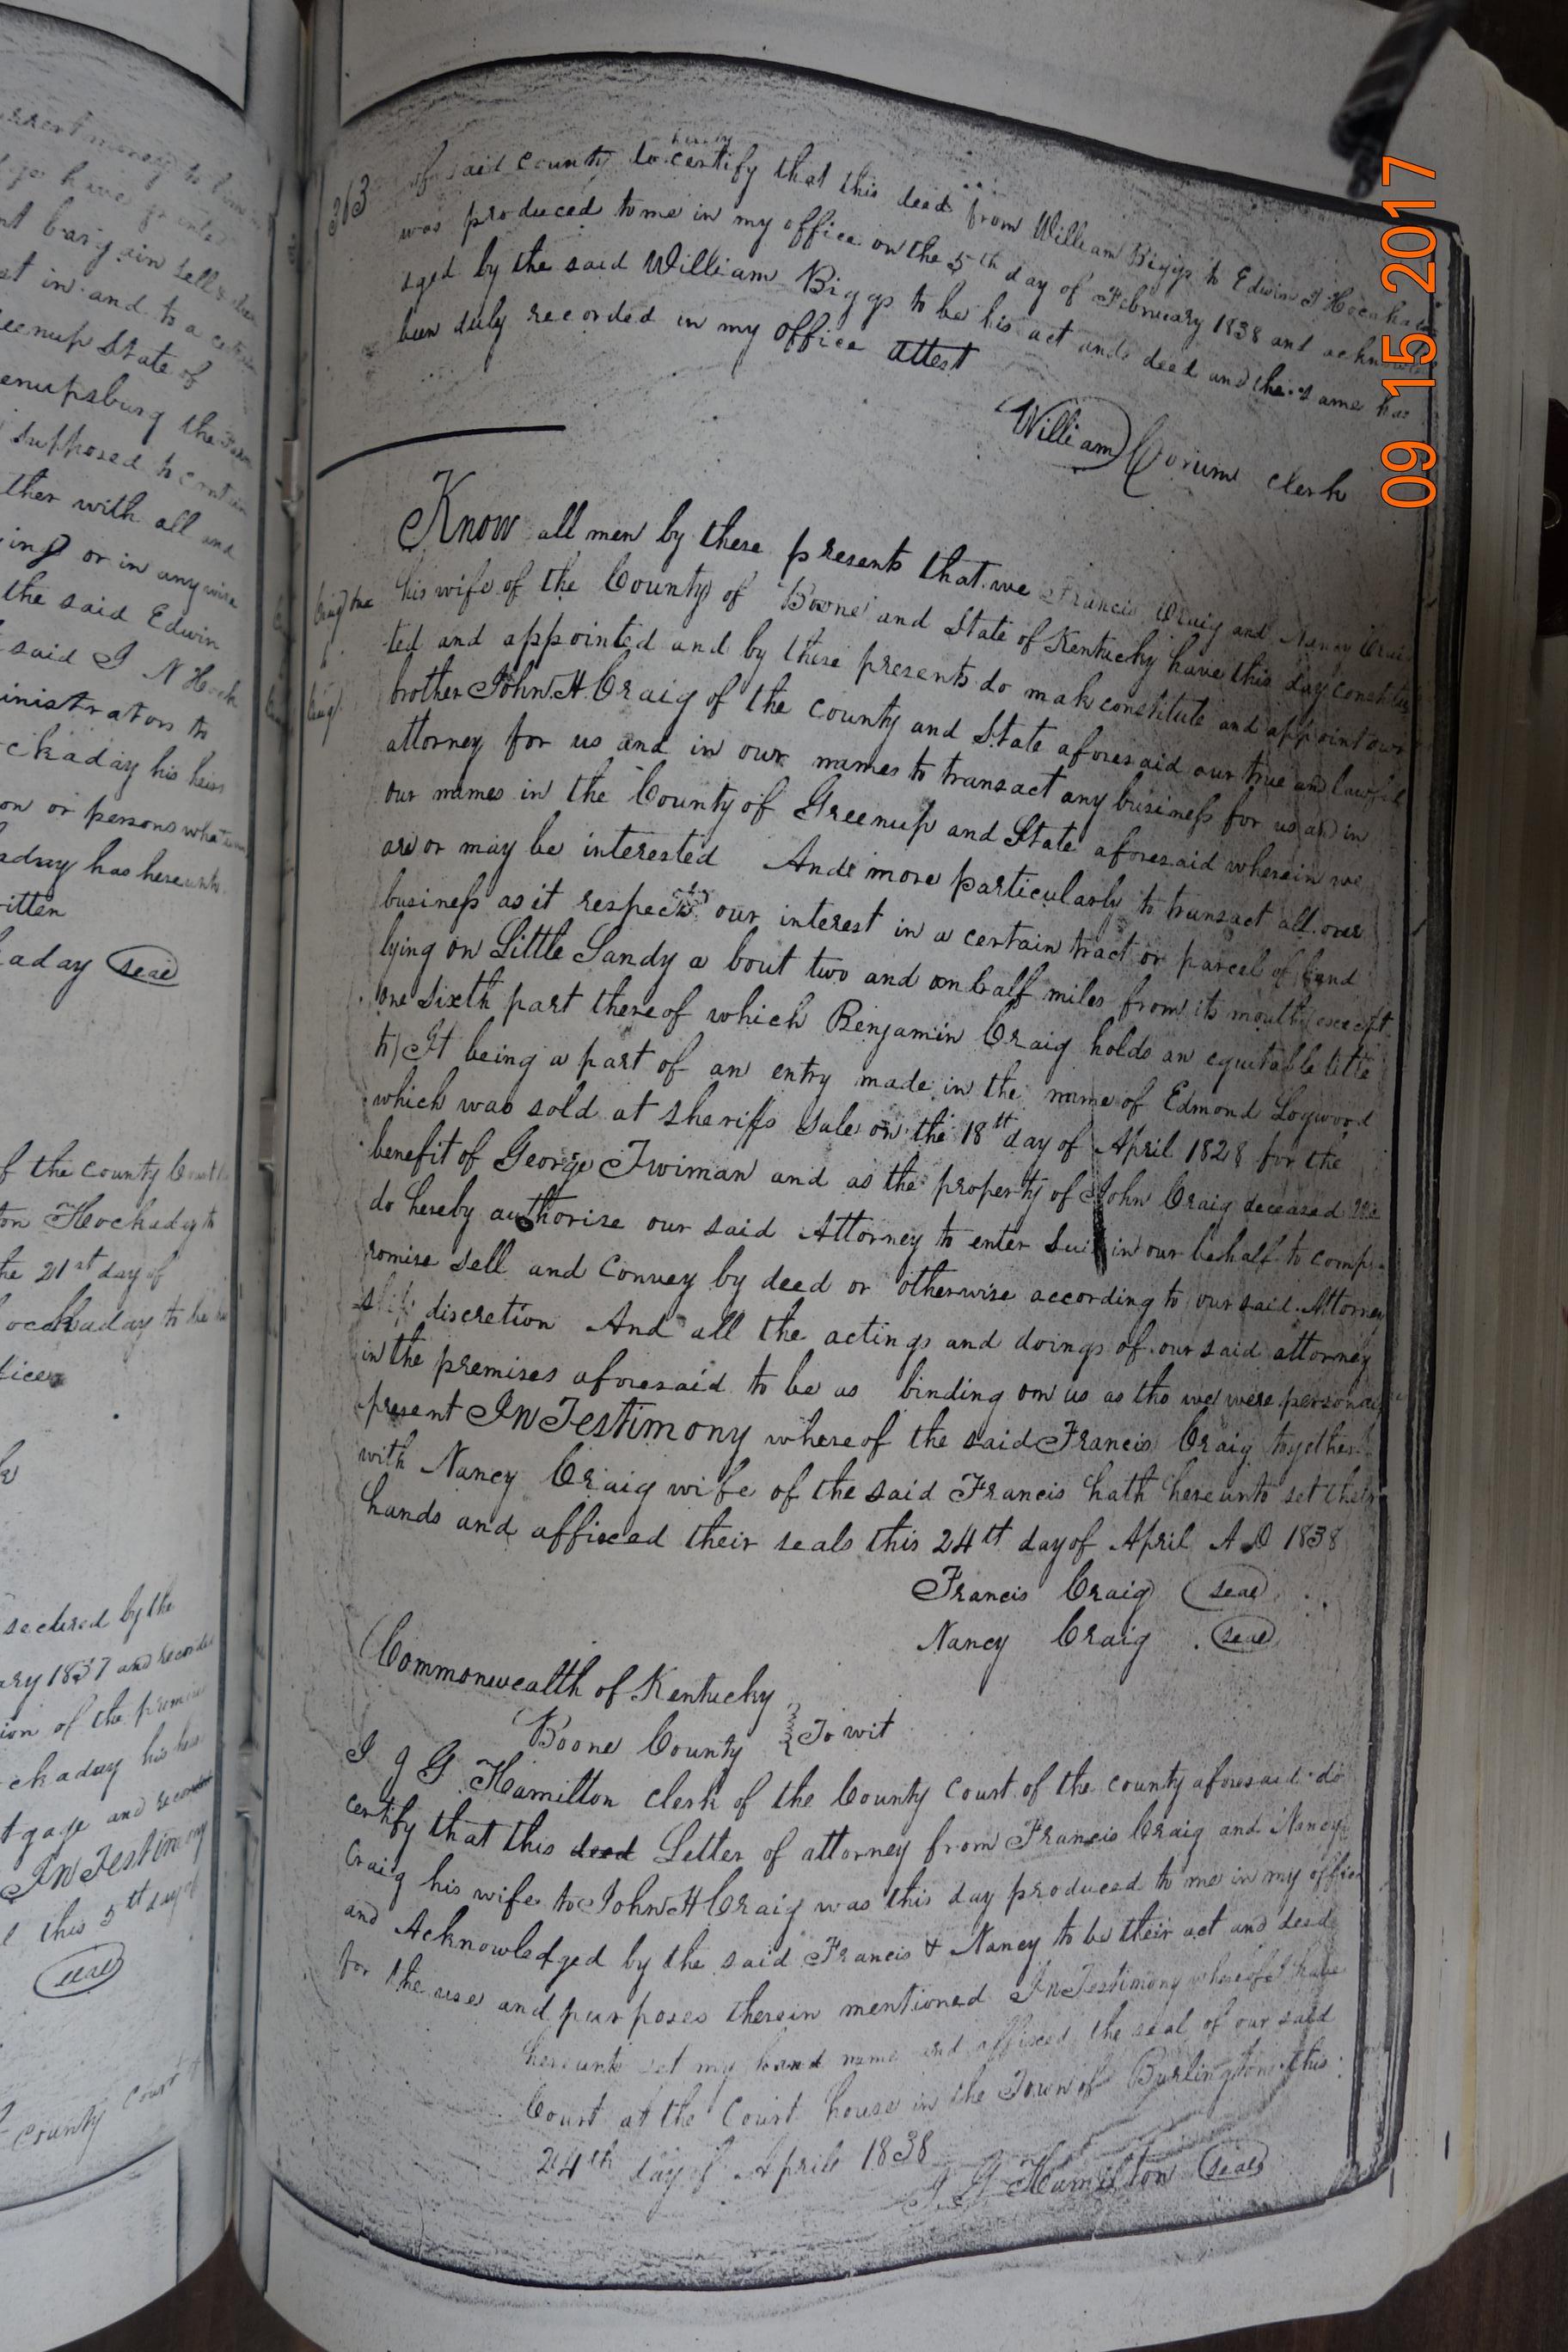 363
of said county do hereby certify that this deed from William Biggs to Edwin J Hockaday
was produced to me in my office on the 5th day of February 1838 and acknowle
dged by the said William Biggs to be his act and deed and the same has
been duly recorded in my office attest
William Corum clerk
Know all men by these presents that we Francis Craig and Nancy Craig
his wife of the County of Boone and State of Kentucky have this day constitu
ted and appointed and by these presents do make constitute and appoint our
brother John H Craig of the county and State aforesaid our true and lawful
attorney for us and in our names to transact any business for us and in
our names in the County of Greenup and State aforesaid wherein we
are or may be interested And more particularly to transact all our
business as it respects our interest in a certain tract or parcel of land
lying on Little Sandy a bout two and on half miles from its mouth (except
one Sixth part thereof which Benjamin Craig holds an equitable title
to) It being a part of an entry made in the name of Edmond Logwood
which was sold at sheriffs sale on the 18th day of April 1828 for the
benefit of George Twiman and as the property of John Craig deceased We
do hereby authorise our said Attorney to enter Suit in our behalf to comp
romise sell and Convey by deed or otherwise according to our said Attorney
discretion And all the actings and doings of our said attorney
in the premises aforesaid to be as binding on us as tho we were personaly
present In Testimony whereof the said Francis Craig together
with Nancy Craig wife of the said Francis hath hereunto set their
hands and affixed their seals this 24th day of April A D 1838
Francis Craig seal
Nancy Craig seal
Commonwealth of Kentucky
Boone County } To wit
I J G Hamilton clerk of the County Court of the county aforesaid do
certify that this deed Letter of attorney from Francis Craig and Nancy
Craig his wife to John H Craig was this day produced to me in my office
and Acknowledged by the said Francis & Nancy to be their act and deed
for the uses and purposes therein mentioned In Testimony whereof I have
hereunto set my hand name and affixed the seal of our said
Court at the Court house in the Town of Burlington this
24th day of April 1838
J G Hamilton seal
09 15 2017
bargain sell
in and to a
State of
enupsburg the
supposed to contain
ther with all and
ing or in any wise
the said Edwin
said J N Hock
inistrators to
ckaday his heirs
on or persons what
aday has hereunto
itten
aday seal
f the county Court
on Hockaday to
the 21st day of
ockaday to be
fice
secured by the
ary 1837 and recorded
ion of the premises
ckaday his heirs
tgage and
In Testimony
this 5th day of
seal
county court